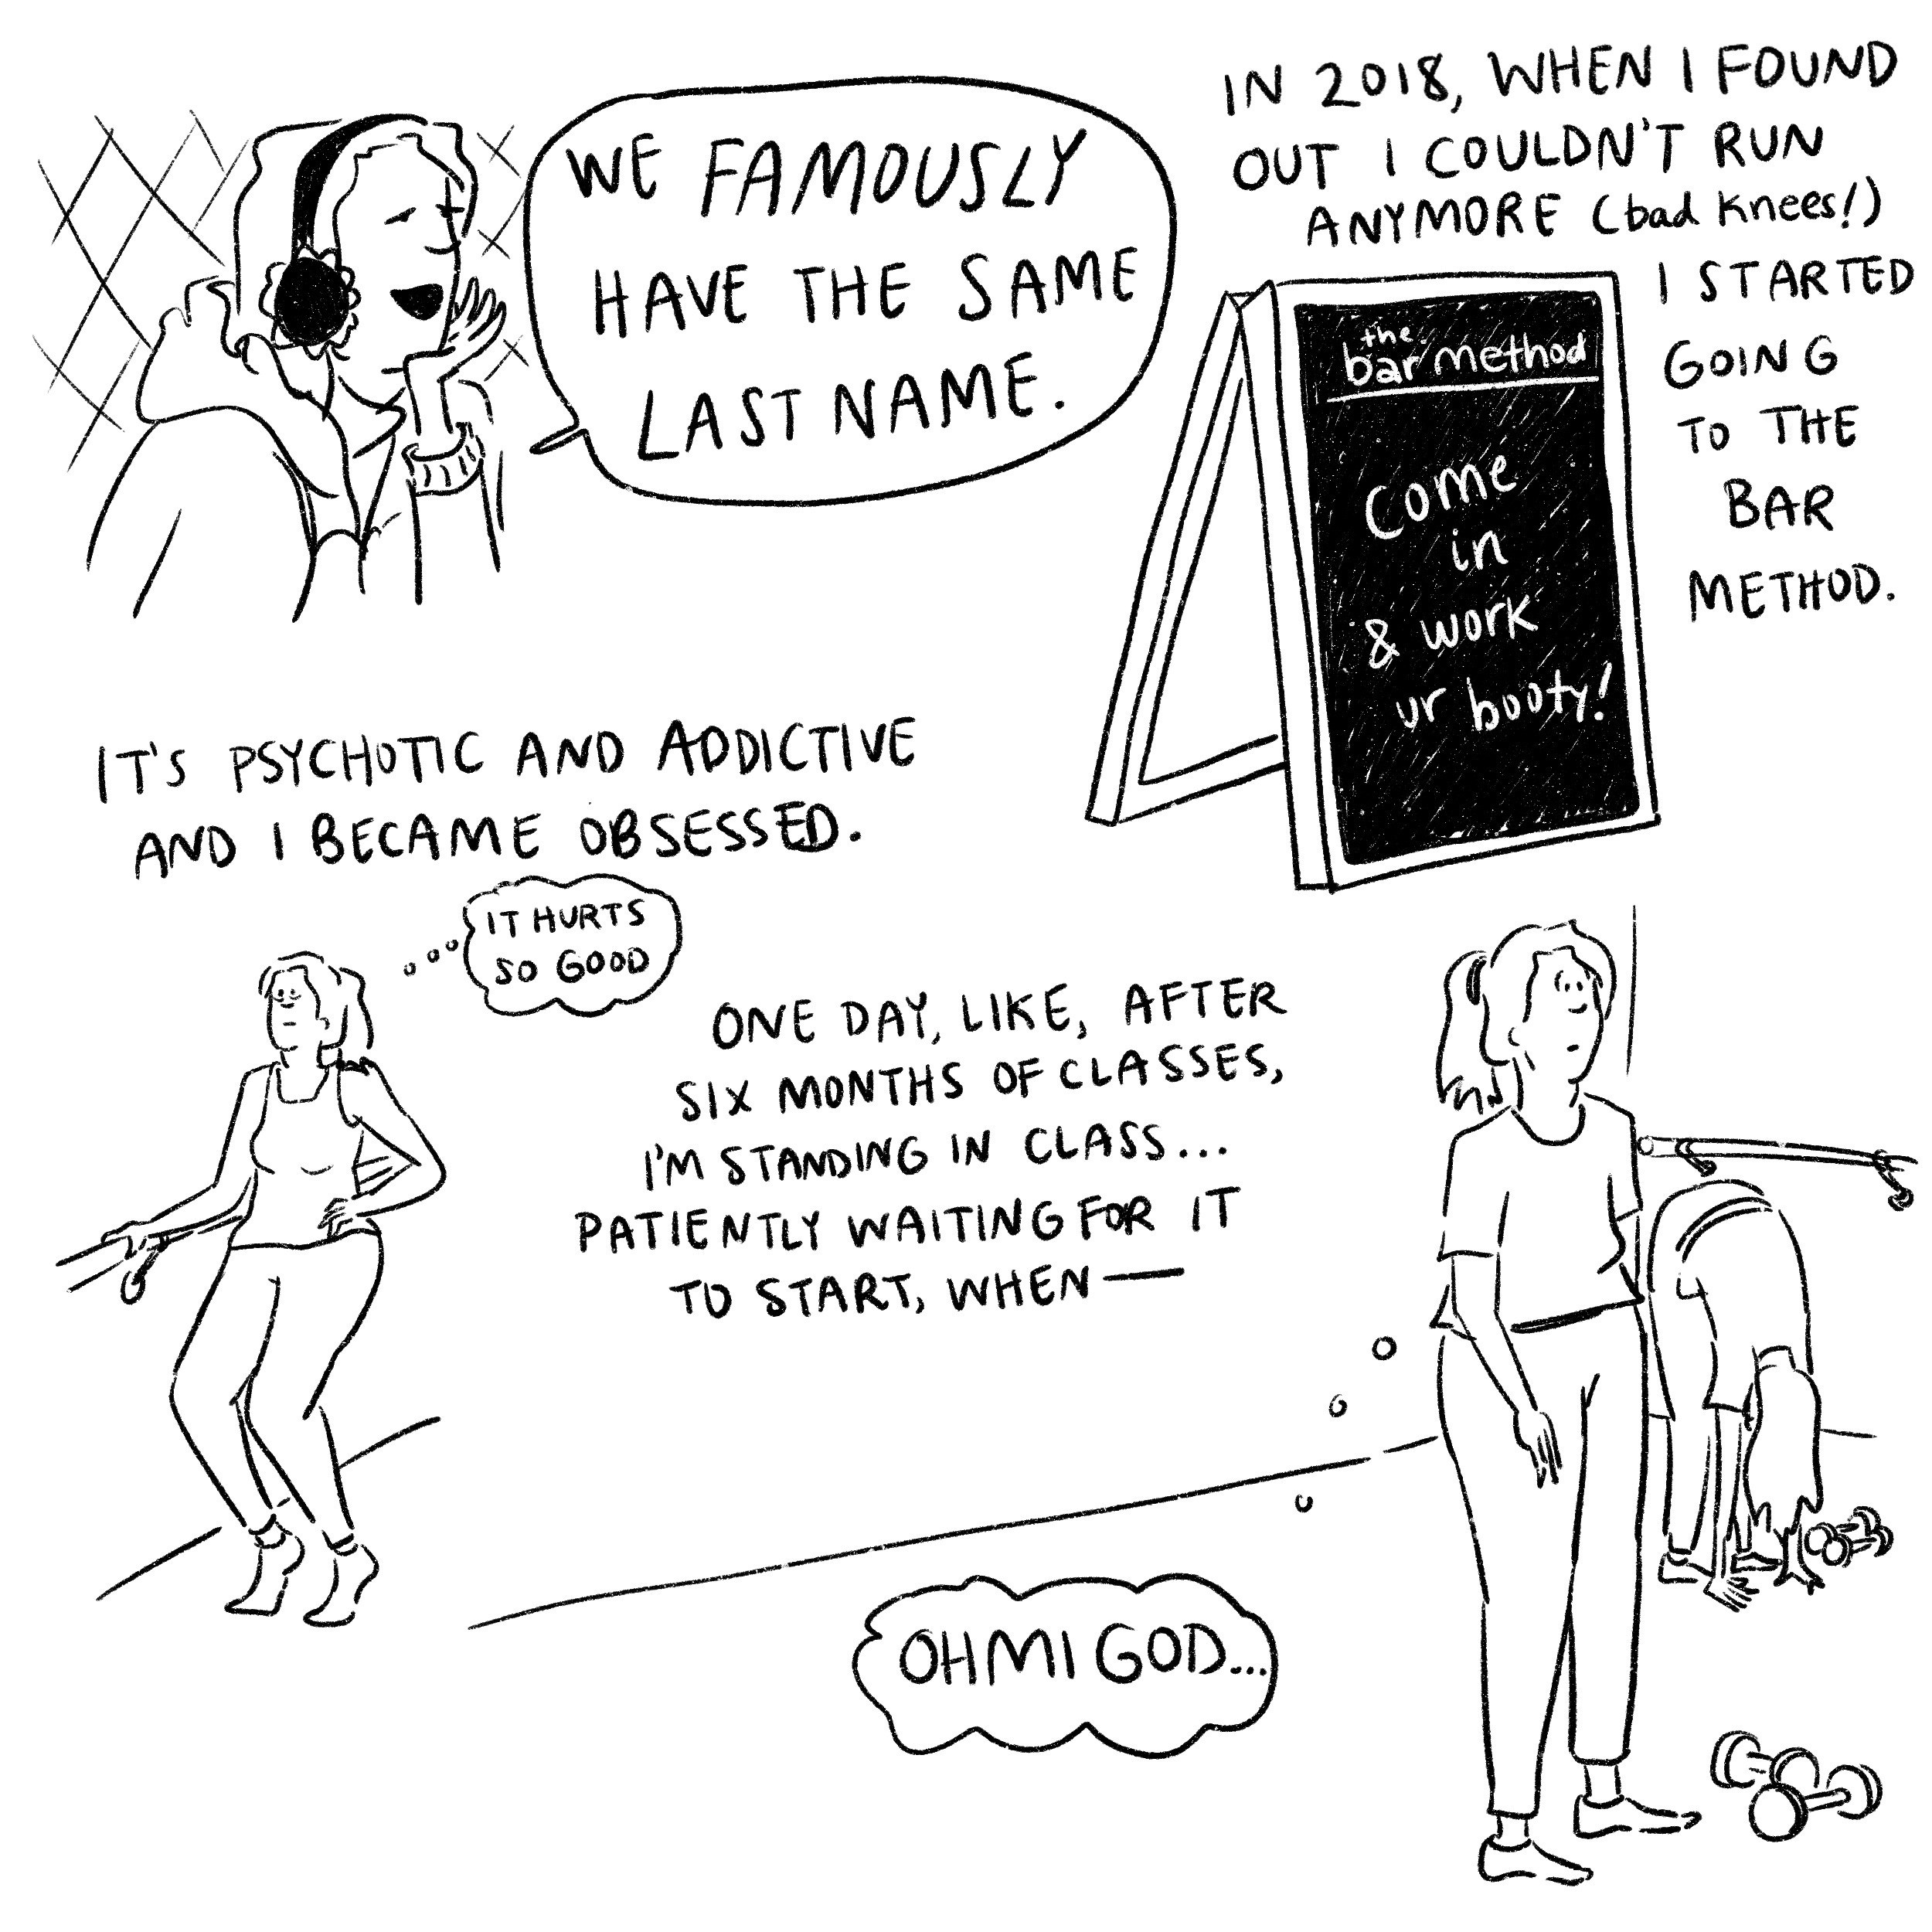 WE FAMOUSLY
HAVE THE SAME
LAST NAME.
IN 2018, WHEN I FOUND
OUT I COULDN'T RUN
ANYMORE (bad knees!)
I STARTED
GOING
TO THE
BAR
METHOD.
the
bar method
Come
in
& work
ur booty!
IT'S PSYCHOTIC AND ADDICTIVE
AND I BECAME OBSESSED.
IT HURTS
SO GOOD
ONE DAY, LIKE, AFTER
SIX MONTHS OF CLASSES,
I'M STANDING IN CLASS...
PATIENTLY WAITING FOR IT
TO START, WHEN —
OHMIGOD...